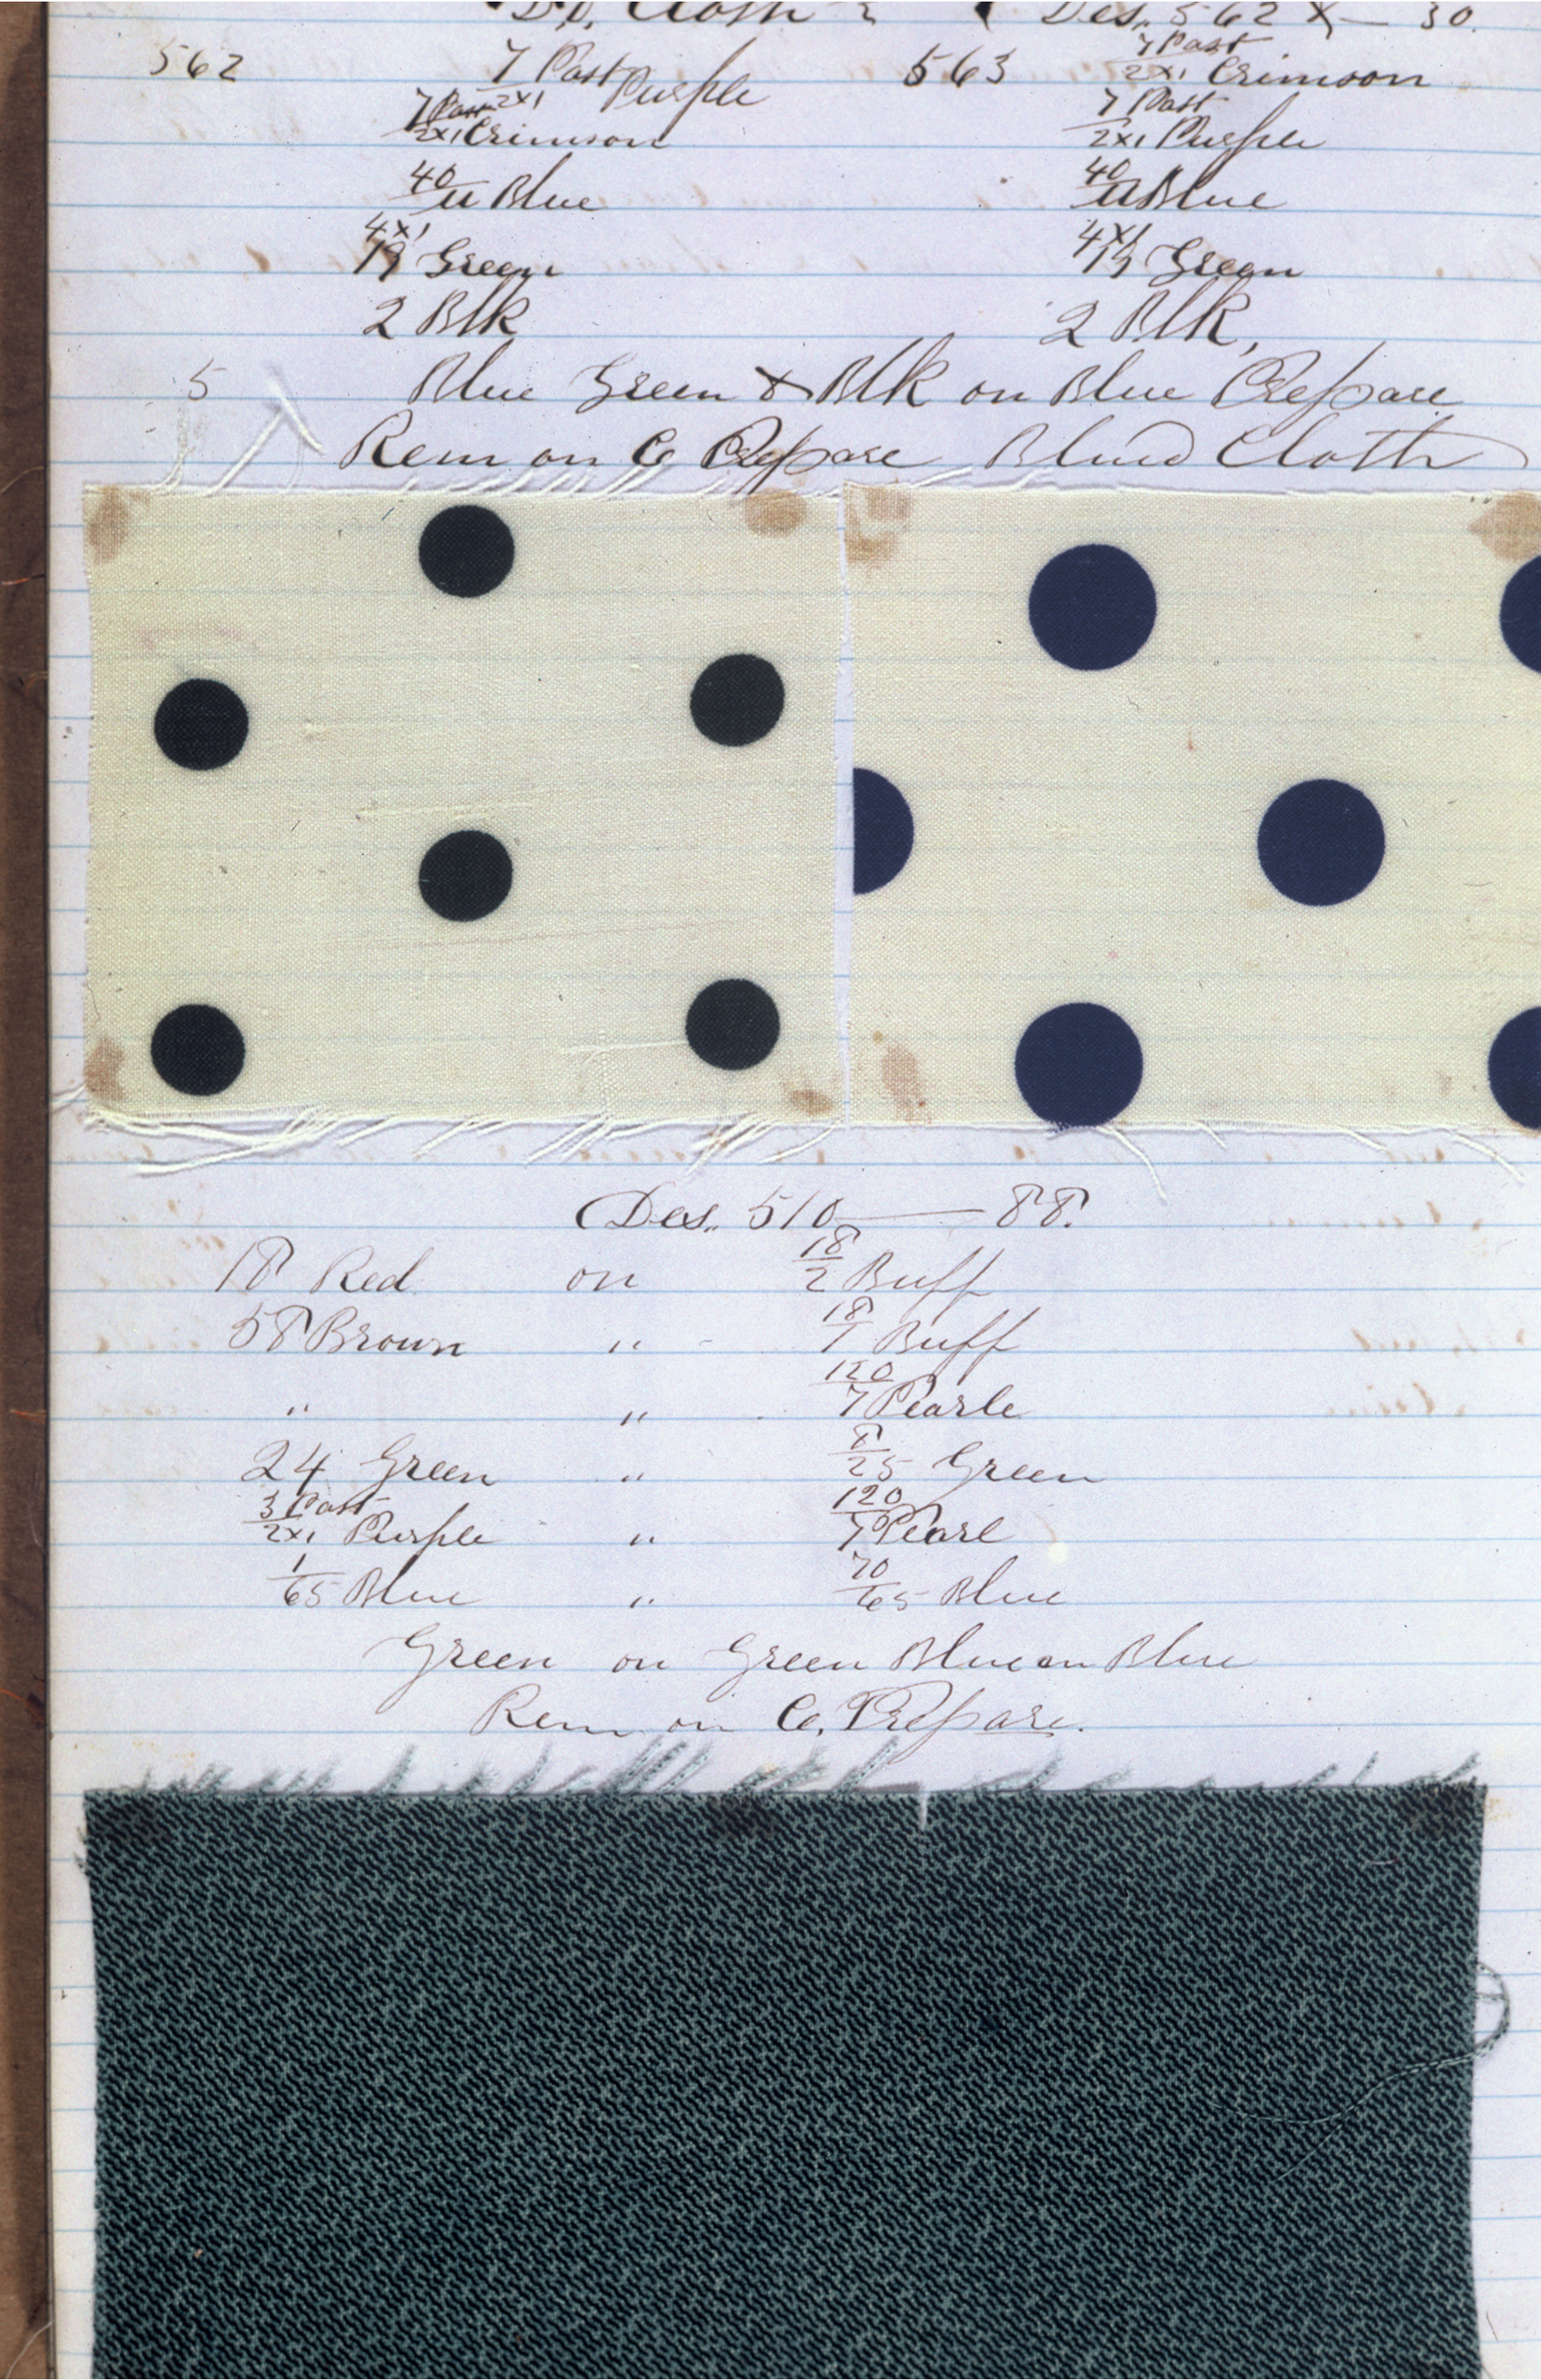 Cloth Des. 562 X — 30
562 7 Past 2x1 Purple
7 Past 2x1 Crimson
40 11 Blue
4x1 19 Green
2 Blk
563 7 Past 2x1 Crimson
7 Past 2x1 Purple
40 11 Blue
4x1 19 Green
2 Blk,
5 Blue Green & Blk on Blue Prepare
Rem on C Prepare Blued Cloth
Des. 510 — 88.
18 Red on 18/2 Buff
58 Brown " 18/7 Buff
" " 120/7 Pearle
24 Green " 8/25 Green
3 Past 2x1 Purple " 120/7 Pearl
1/65 Blue " 70/65 Blue
Green on Green Blue on Blue
Rem on C. Prepare.